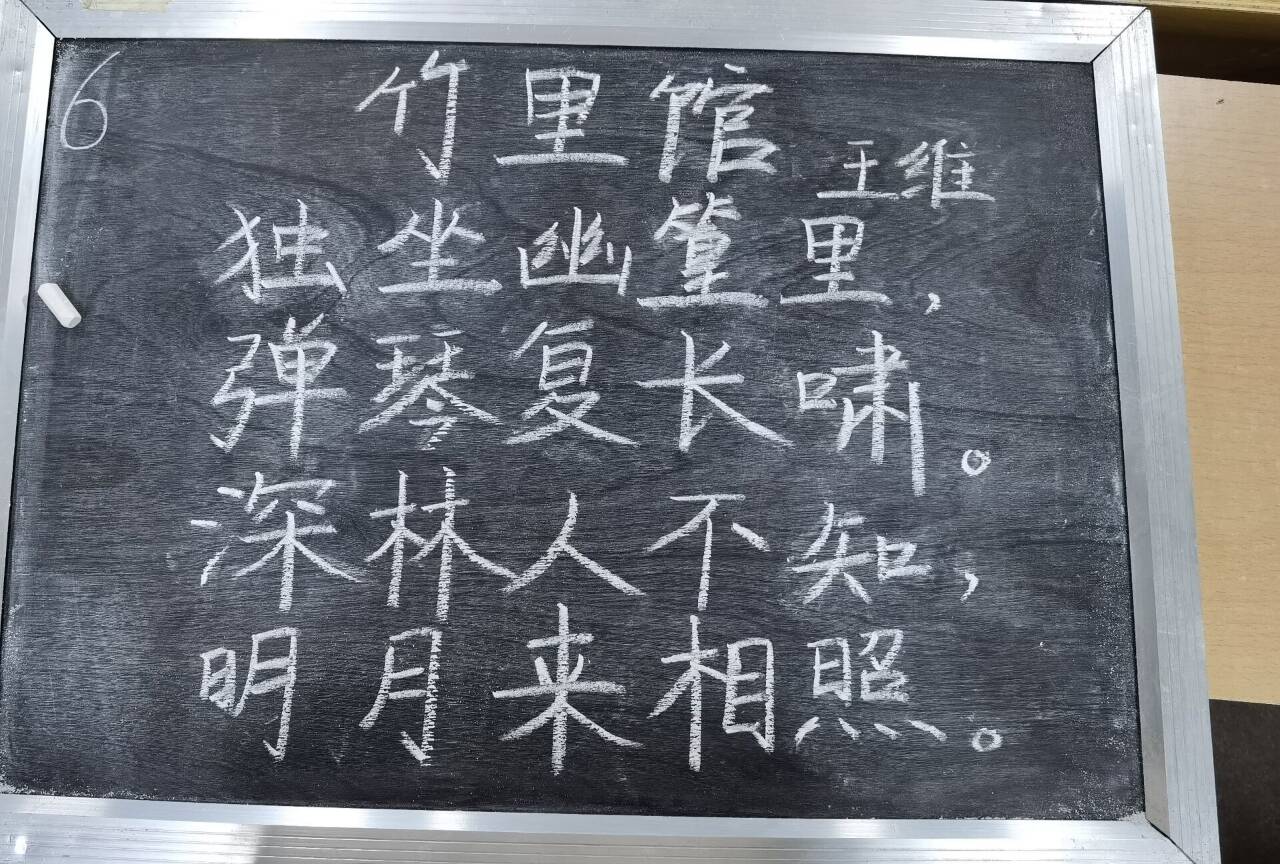 6
竹里馆
王维
独坐幽篁里,
弹琴复长啸。
深林人不知,
明月来相照。